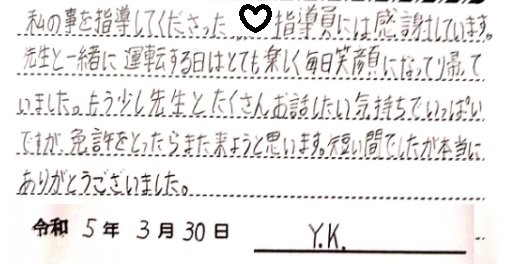 私の事を指導してくださった♡指導員には感謝しています。
先生と一緒に運転する日はとても楽しく毎日笑顔になって帰って
いました。もう少し先生とたくさんお話したい気持ちでいっぱい
ですが、免許をとったらまた来ようと思います。短い間でしたが本当に
ありがとうございました。
令和 5年 3月 30日 Y.K.